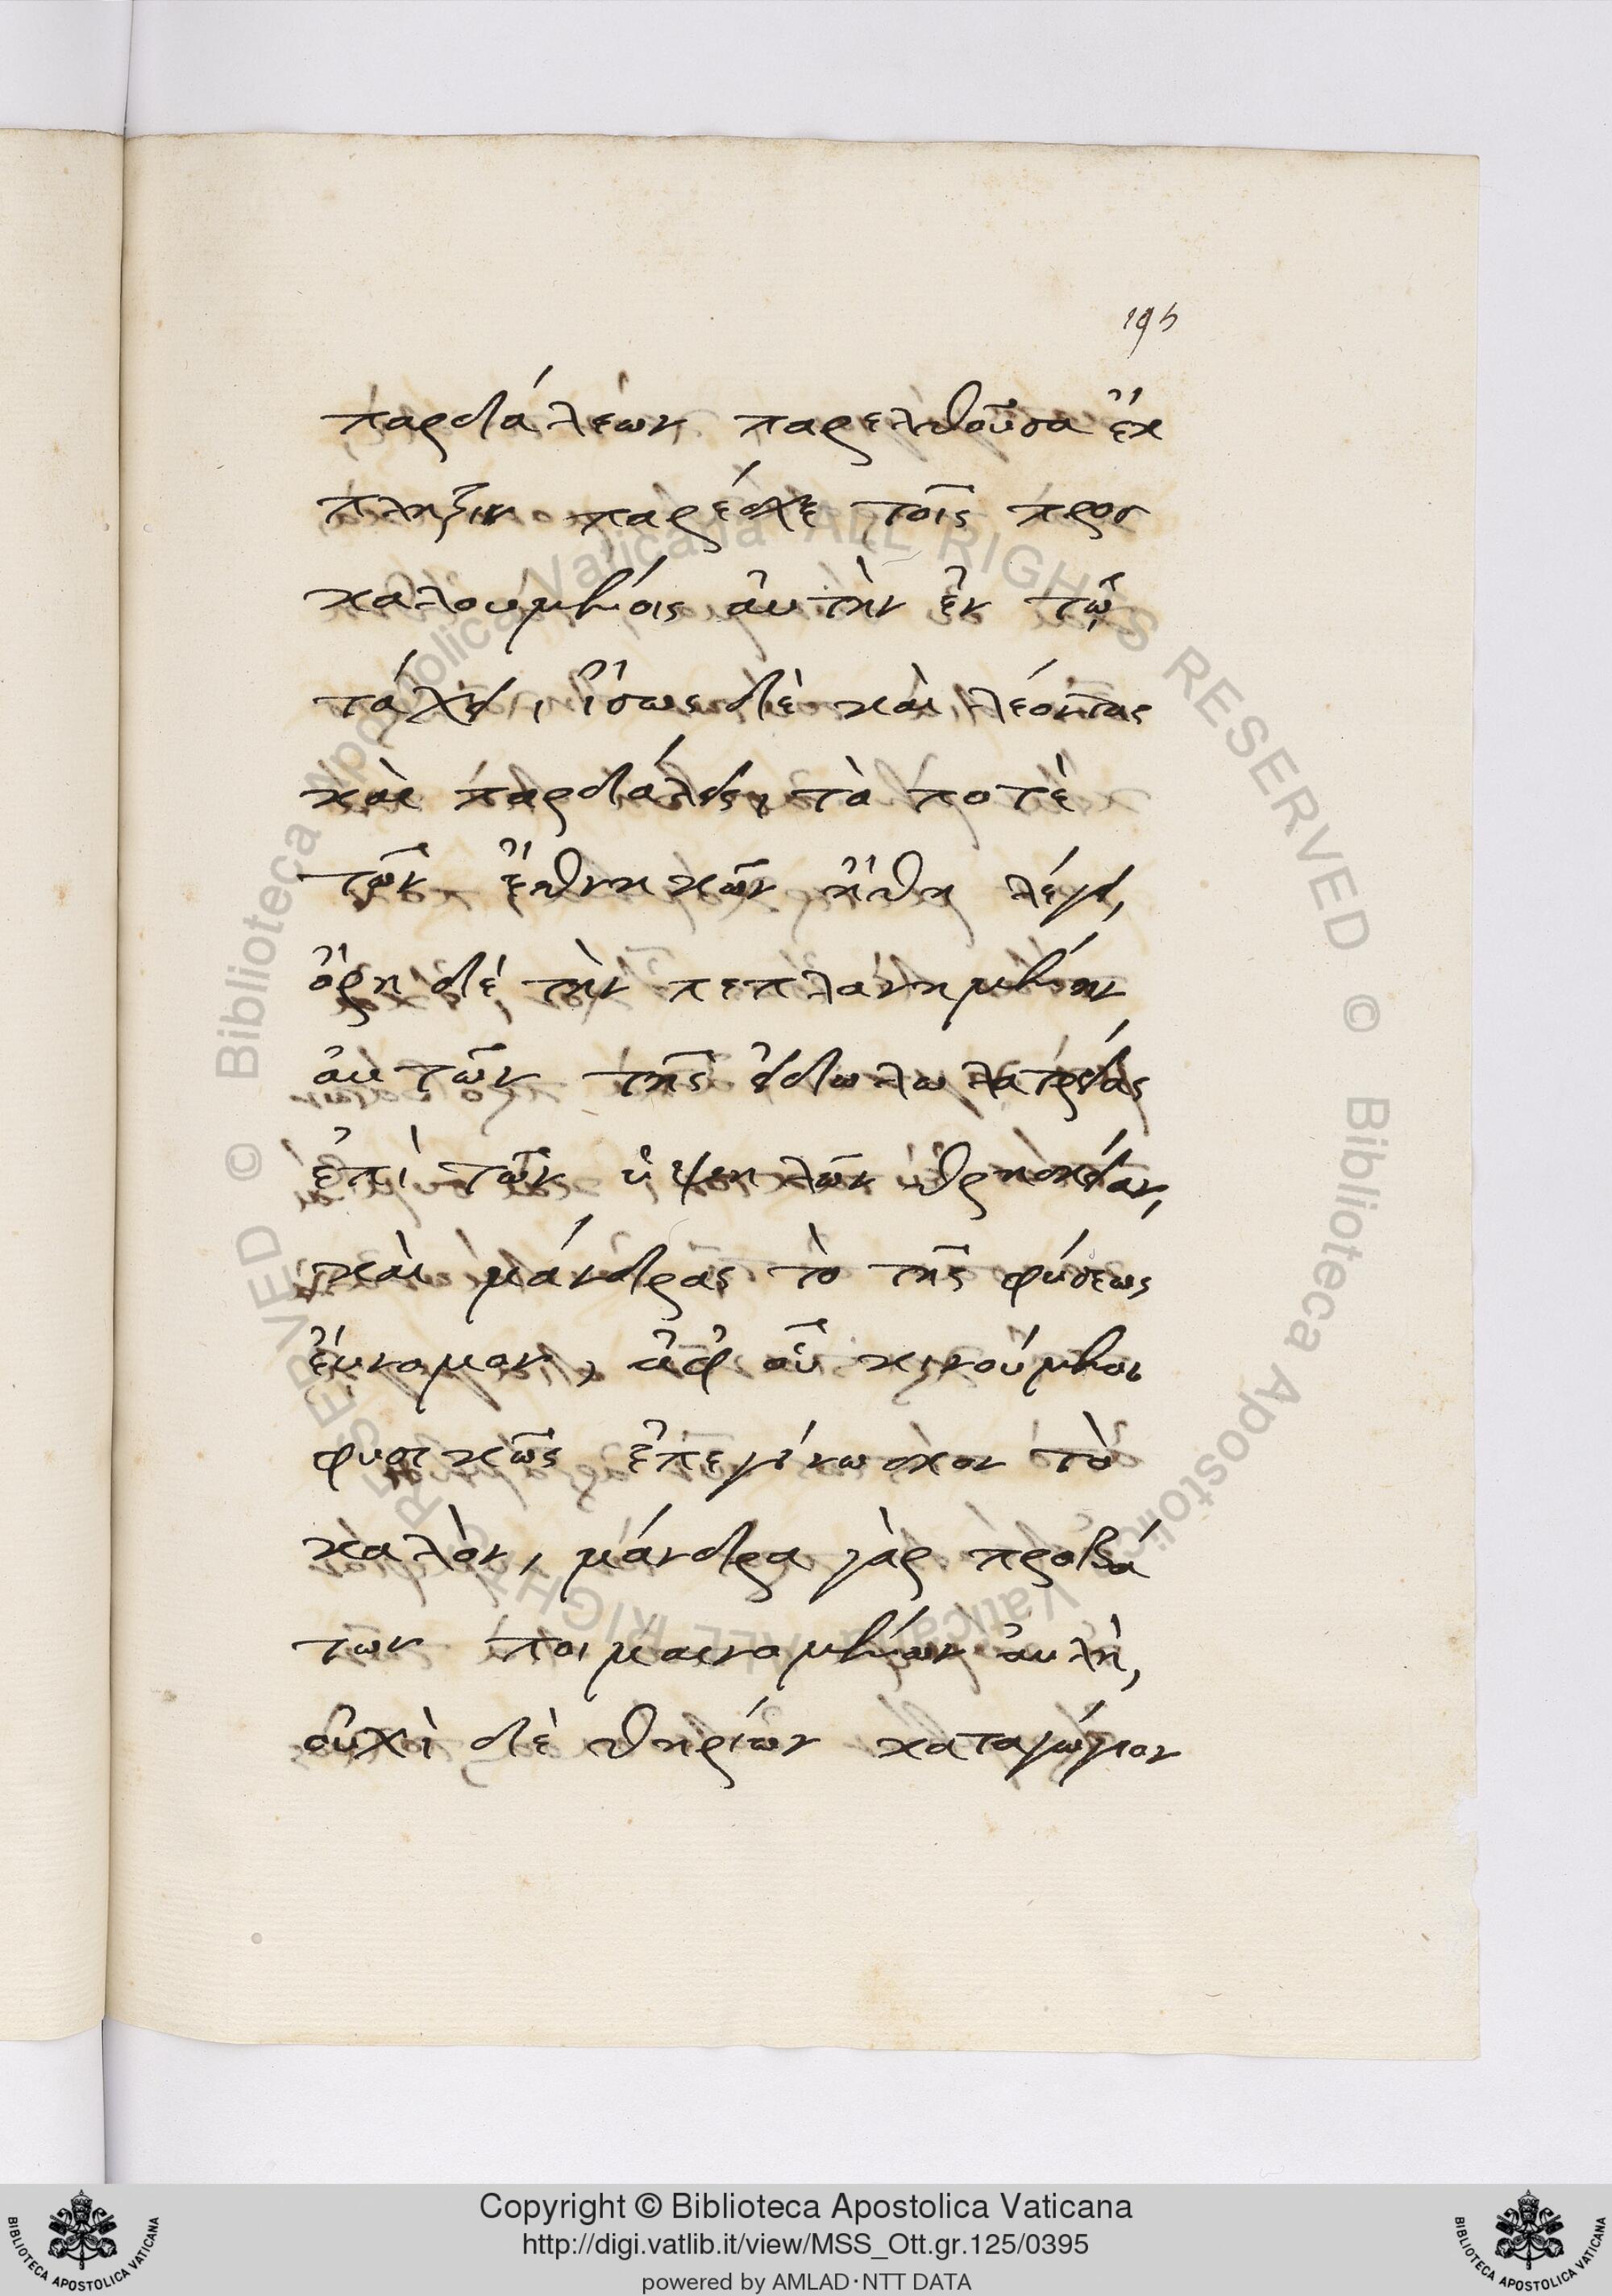 195
παρδάλεων παρελθοῦσα ἔκ
πληξιν παρέσχε τοῖς προσ
καλουμένοις ἀυτὴν ἐν τῷ
τάχει, ἴσως δὲ καὶ λέοντας
καὶ παρδάλεις, τὰ ποτὲ
τῶν ἐθνικῶν ἤθη λέγει,
ὄρη δὲ τὴν πεπλανημένην
ἀυτῶν τῆς ἐιδωλολατρείας
ἐπὶ τῶν ὑψηλῶν θρησκείαν,
καὶ μάνδρας τὸ τῆς φύσεως
ἔννομον, ἀφ οὗ κινούμενοι
φυσικῶς ἐπεγίνωσκον τὸ
καλὸν, μάνδρα γὰρ προβά
των ποιμαινομένων ἀυλὴ,
οὐχὶ δὲ θηρίων καταγώγιον
Copyright © Biblioteca Apostolica Vaticana
http://digi.vatlib.it/view/MSS_Ott.gr.125/0395
powered by AMLAD·NTT DATA
© Biblioteca Apostolica Vaticana ALL RIGHTS RESERVED
© Biblioteca Apostolica Vaticana ALL RIGHTS RESERVED
BIBLIOTECA APOSTOLICA VATICANA
BIBLIOTECA APOSTOLICA VATICANA